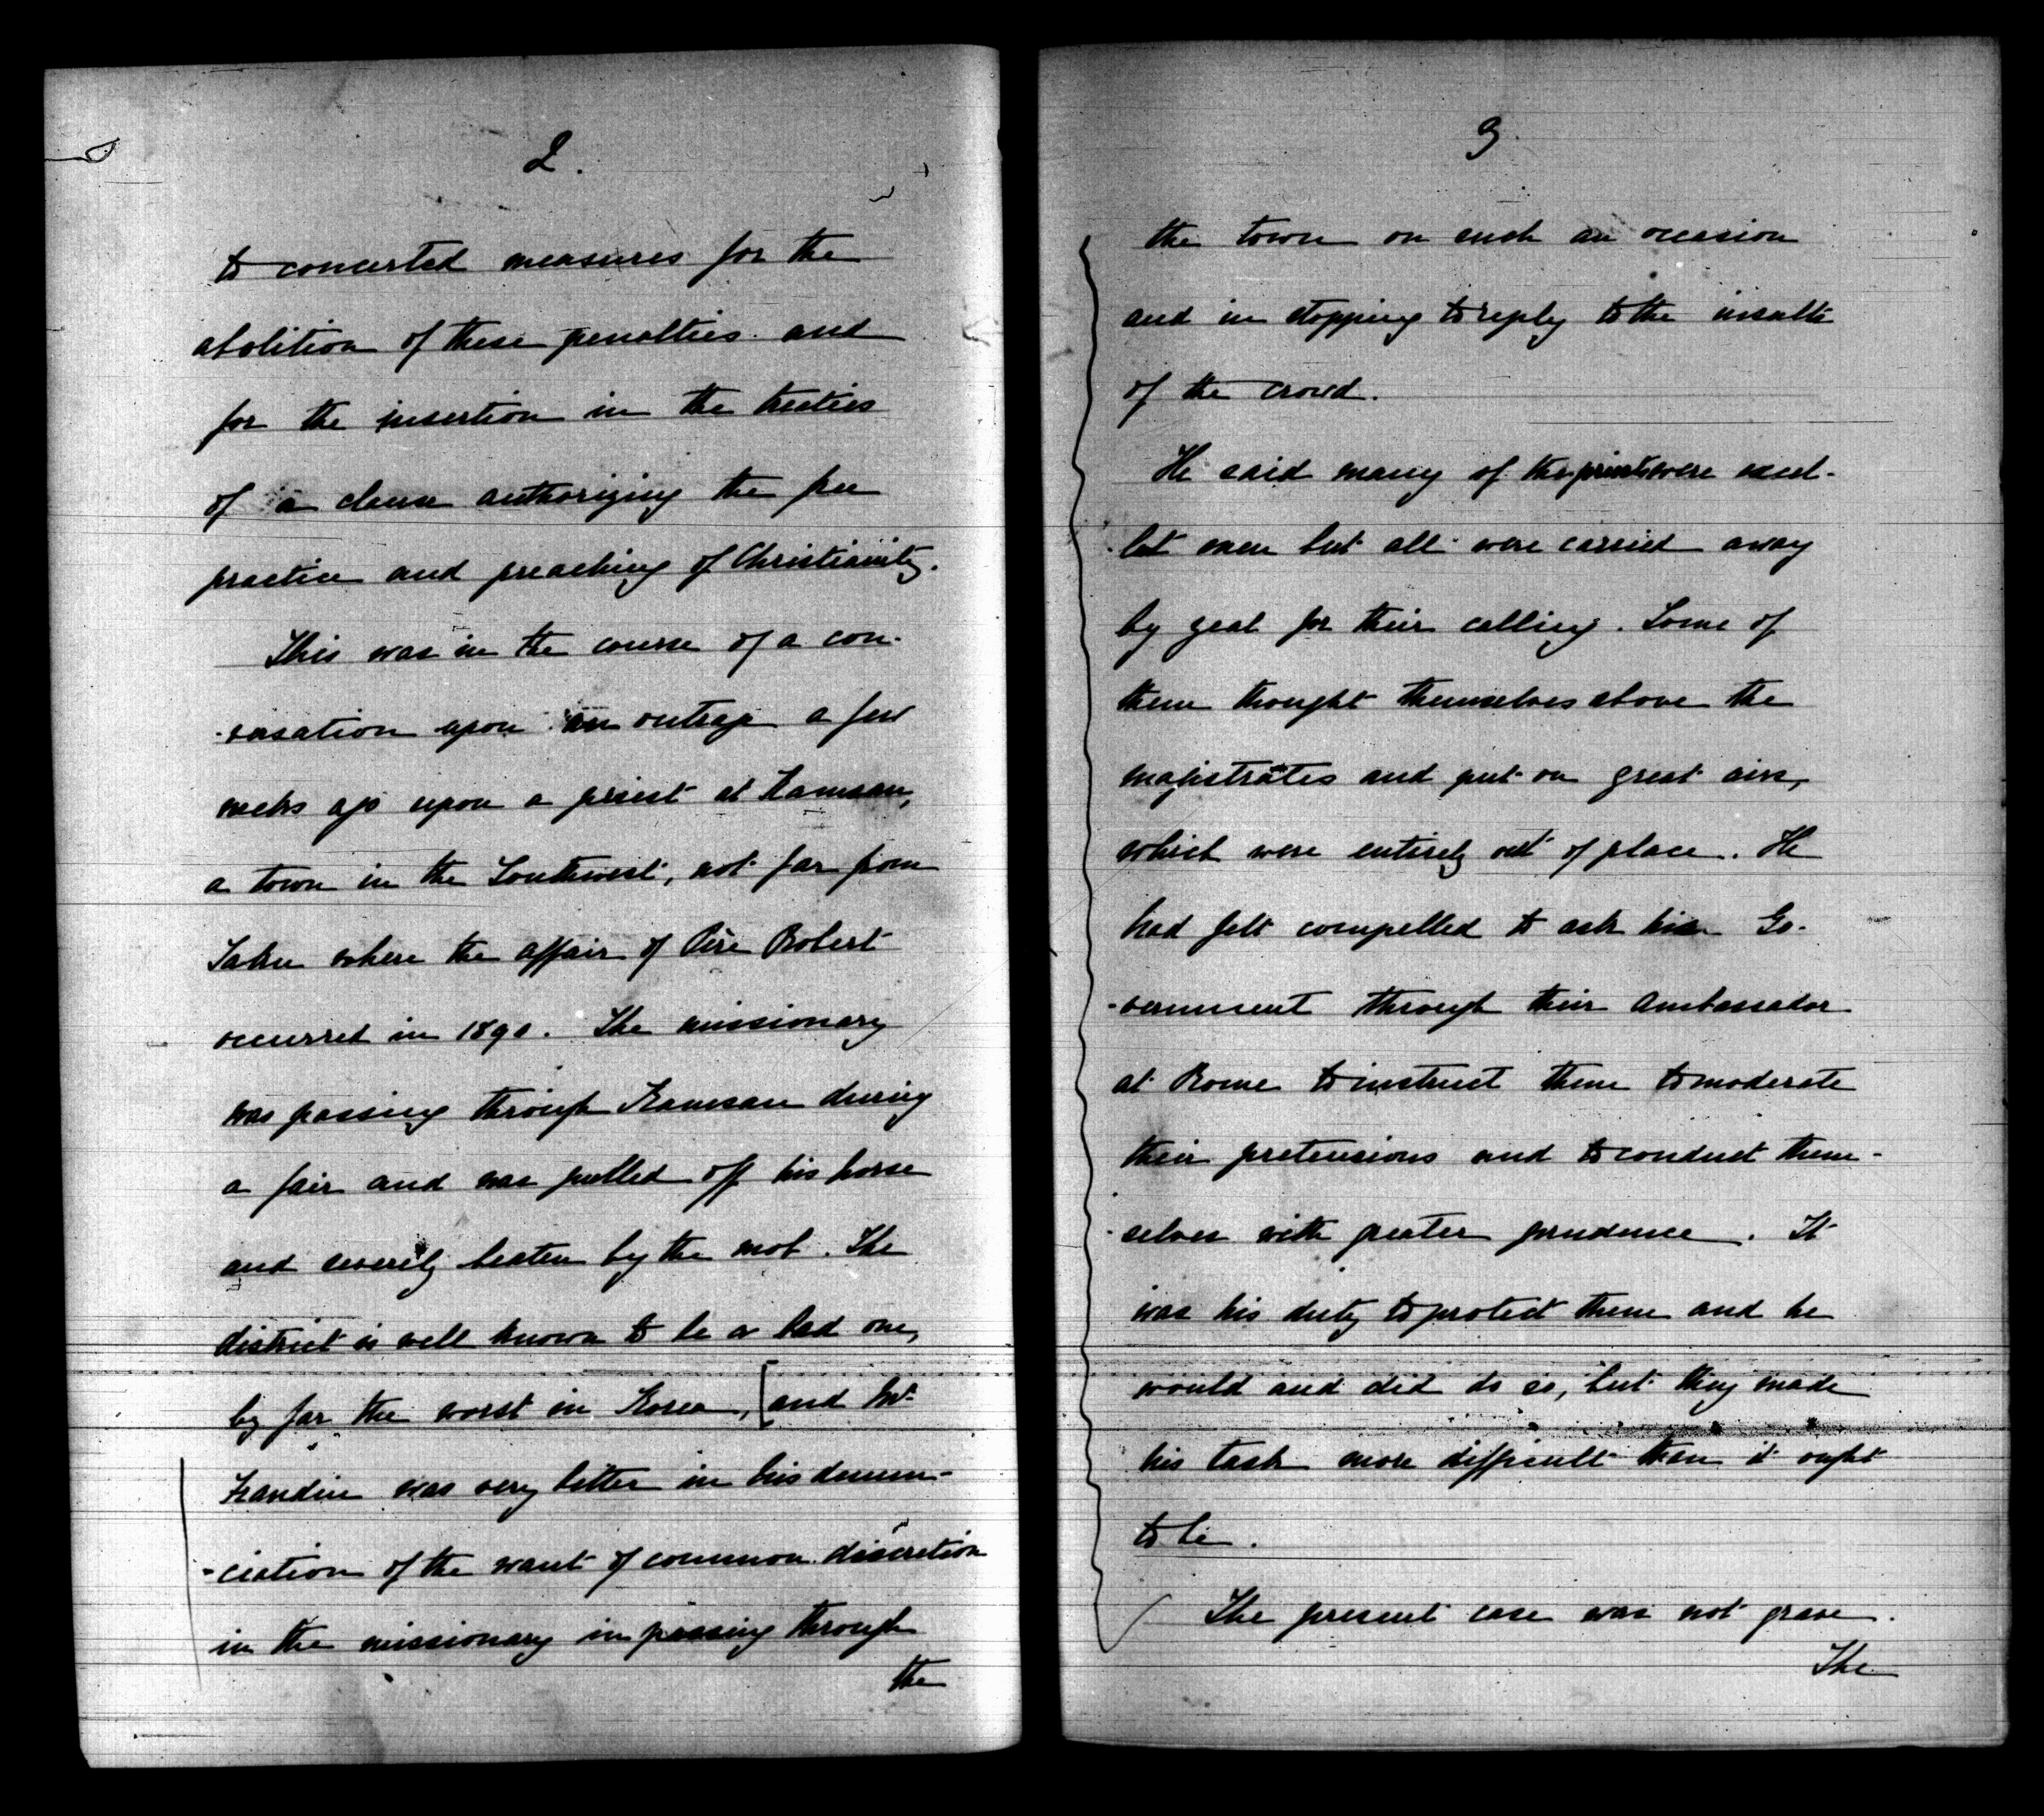 2.
to concerted measures for the
abolition of these penalties and
for the insertion in the treaties
of a clause authorizing the free
practice and preaching of Christianity.
This was in the course of a con-
-versation upon an outrage a few
weeks ago upon a priest at Kamsan,
a town in the Southwest, not far from
Taku where the affair of Père Robert
occurred in 1890. The missionary
was passing through Kamsan during
a fair and was pulled off his horse
and severely beaten by the mob. The
district is well known to be a bad one,
by far the worst in Korea, [and Mr.
Frandin was very bitter in his denun-
-ciation of the want of common discretion
in the missionary in passing through
the
3.
the town on such an occasion
and in stopping to reply to the insults
of the crowd.
He said many of the priests were excel-
-lent men but all were carried away
by zeal for their calling. Some of
them thought themselves above the
magistrates and put on great airs,
which were entirely out of place. He
had felt compelled to ask his Go-
-vernment through their Ambassador
at Rome to instruct them to moderate
their pretensions and to conduct them-
-selves with greater prudence. It
was his duty to protect them and he
would and did do so, but they made
his task more difficult than it ought
to be.
The present case was not grave.
The